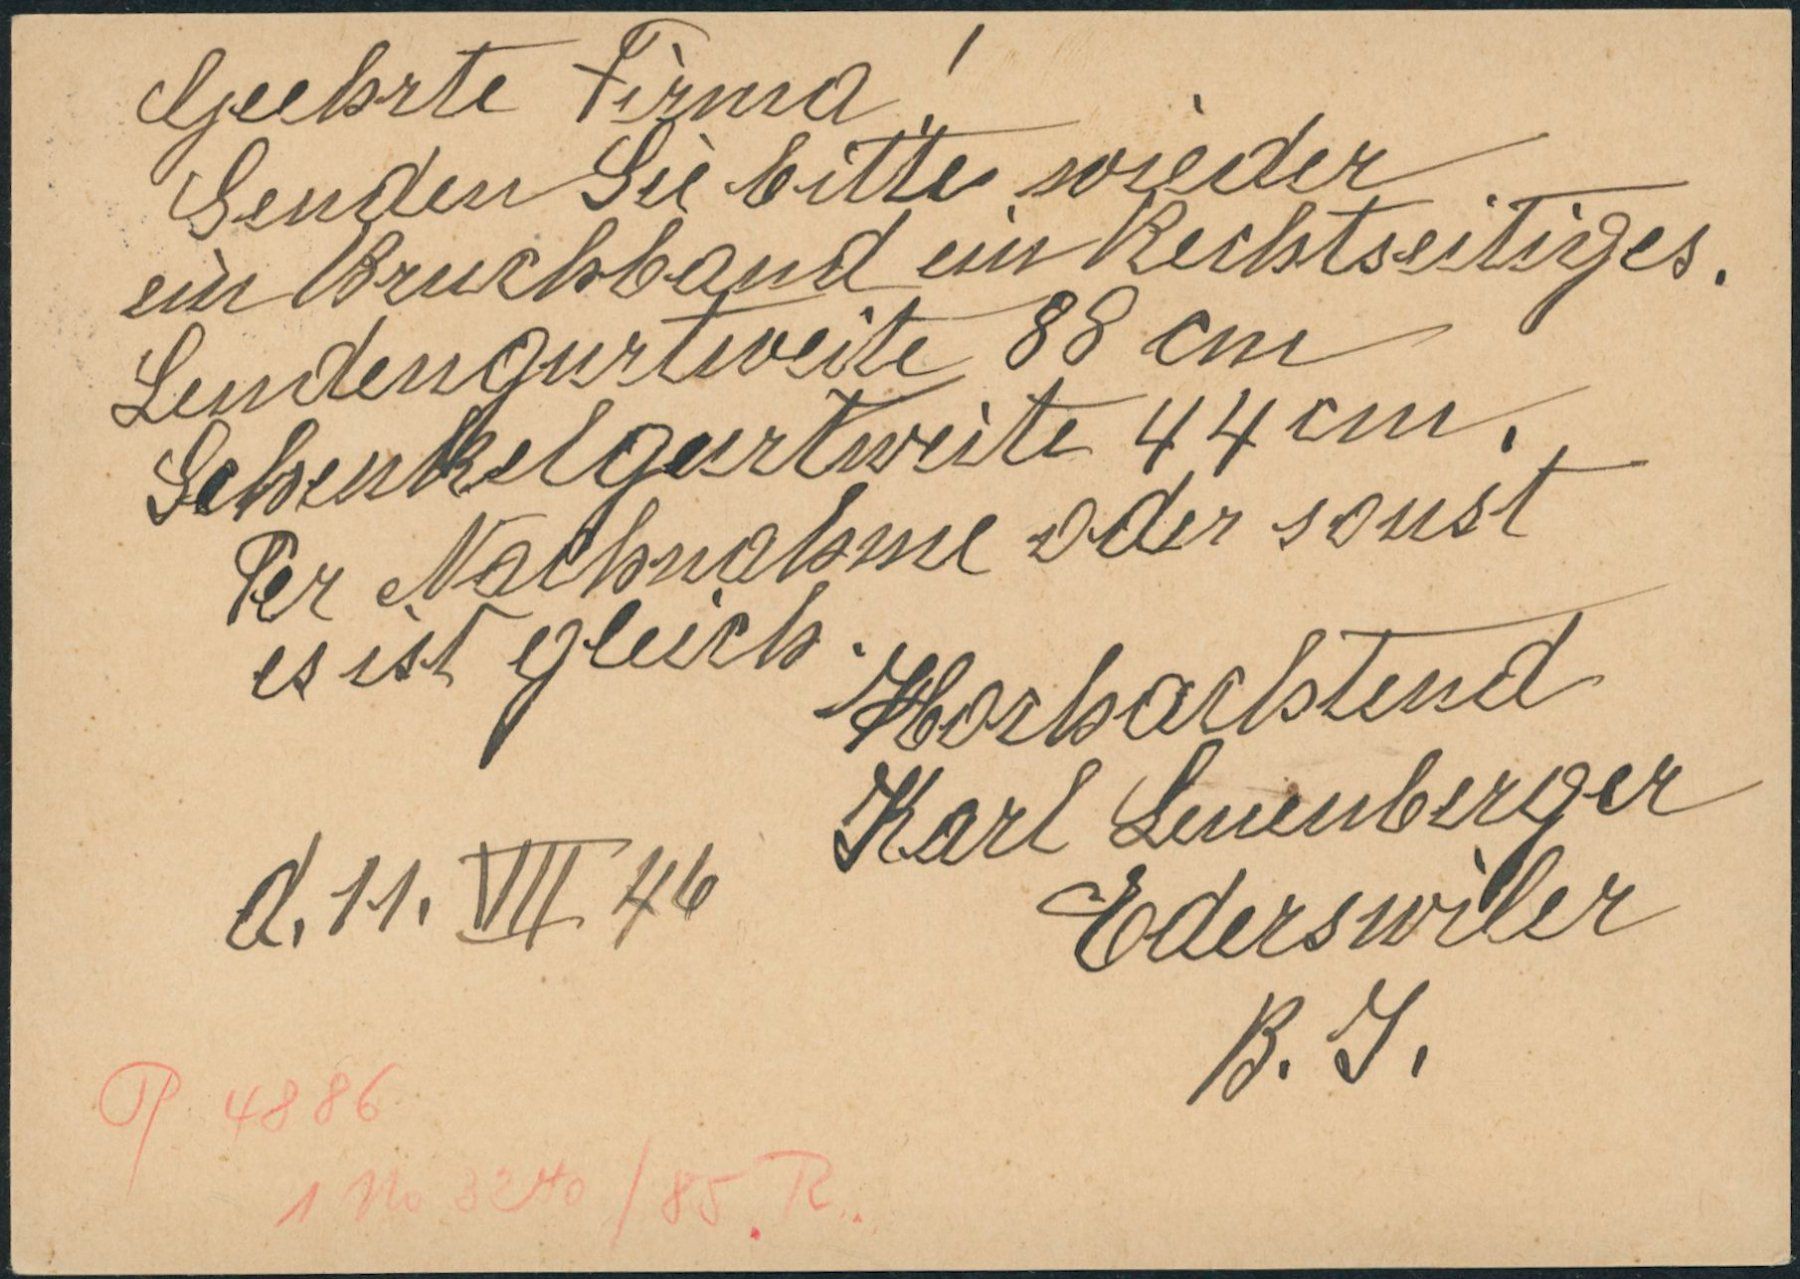 Geehrte Firma!
Senden Sie bitte wieder
ein Bruchband ein Rechtseitiges.
Lendengurtweite 88 cm
Schenkelgurtweite 44 cm.
Per Nachnahme oder sonst
es ist gleich.
Hochachtend
Karl Leuenberger
Ederswiler
B. J.
d. 11. VII 46
P 4886
1 No 3240 / 85. R.